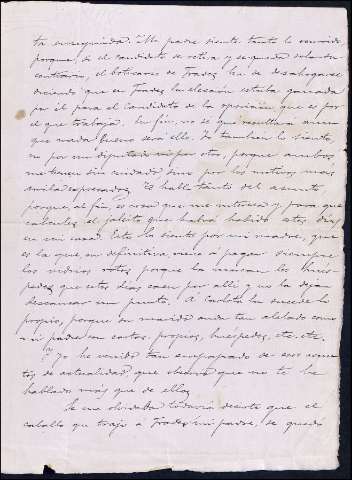 ta enseguida. Mi padre siente tanto lo ocurrido,
porque, si el candidato se retira y se queda solo su
contrario, el boticario de Frades ha de desahogarse
diciendo que en Frades la elección estaba ganada
por él para el candidato de la oposición que es por
el que trabaja. En fin, no sé qué resultará aun
que nada bueno será ello. Yo también lo siento,
no por mi diputado ni por otro, porque ambos
me tienen sin cuidado, sino por los motivos más
arriba expresados. Te hablo tanto del asunto,
porque, al fin, es cosa que me interesa y para que
calcules el jaleito que habrá habido estos días
en mi casa. Esto lo siento por mi madre, que
es la que, en definitiva, viene a pagar siempre
los vidrios rotos porque la marean los hués-
pedes que estos días caen por allí y no la dejan
descansar un punto. A Carlota la sucede lo
propio, porque su marido anda tan alelado como
mi padre con cartas, propios, huéspedes, etc. etc.
Yo he venido tan empapado de esos asun-
tos de actualidad que observo que no te he
hablado más que de ellos.
Se me olvidaba todavía decirte que el
caballo que trajo a Frades mi padre, se quedó